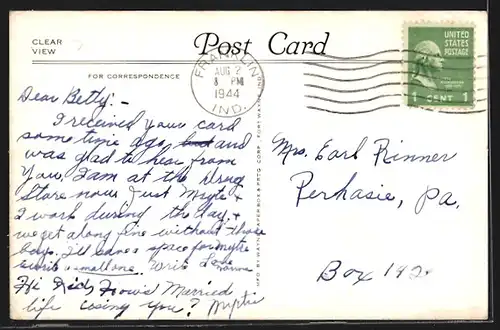 CLEAR
VIEW
Post Card
FOR CORRESPONDENCE
FRANKLIN
AUG 2
8 PM
1944
IND.
UNITED
STATES
POSTAGE
1 CENT 1
Dear Betty:-
I received your card
some time ago, but and
was glad to hear from
you. I am at the drug
store now. Just Myrt &
I work during the day, &
we get along fine without those
boys. I'll save space for Myrt
small one. Write
Hi Kid, How's Married
life using you? Myrt
Mrs. Earl Rinner
Perkasie, Pa.
Box 192